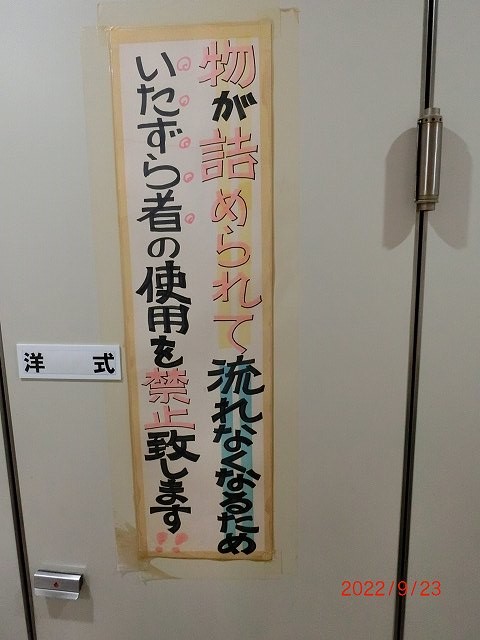 物が詰められて流れなくなるため
いたずら者の使用を禁止致します!!
洋 式
2022/9/23